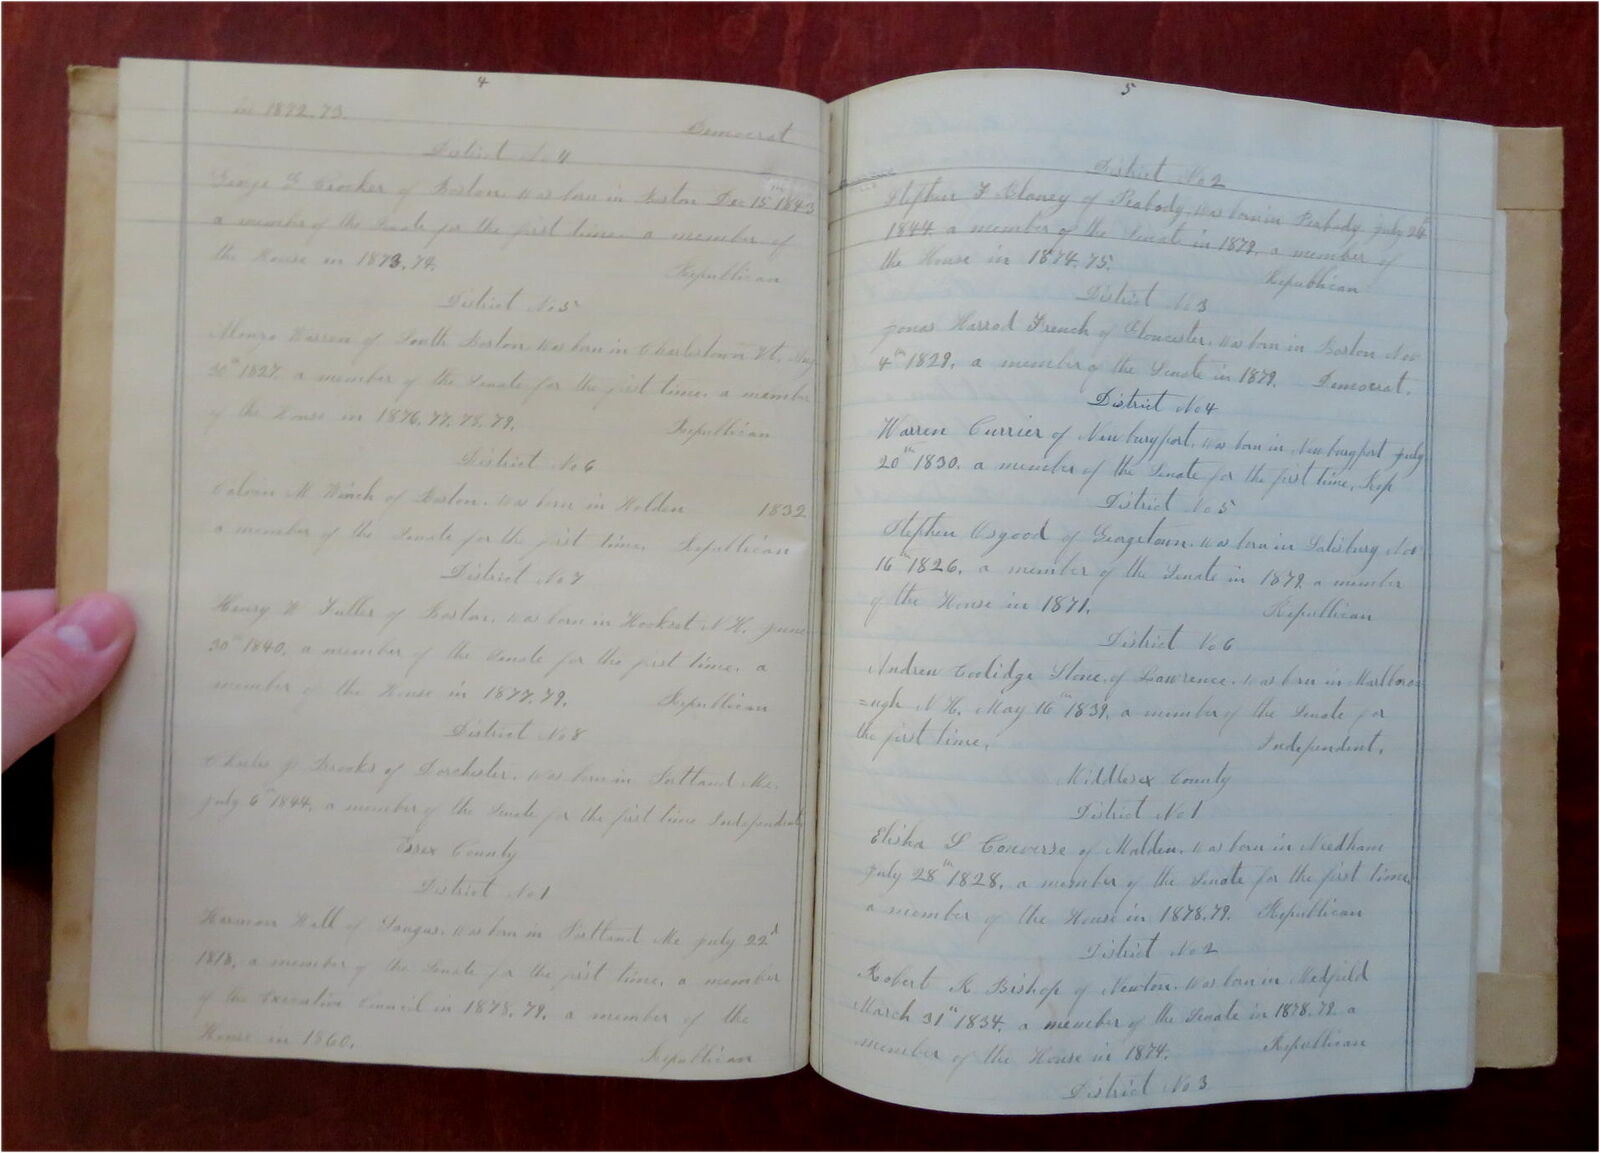 4
in 1872.73.
Democrat
District No 4
George G Crocker of Boston. was born in Boston Dec 15th 1843
a member of the Senate for the first time. a member of
the House in 1873.74. Republican
District No 5
Alonzo Warren of South Boston. was born in Charlestown Vt.
30th 1827. a member of the Senate for the first time. a member
of the House in 1876.77.78.79. Republican
District No 6
Calvin M Winch of Boston. was born in Holden 1832
a member of the Senate for the first time. Republican
District No 7
Henry W Fuller of Boston. was born in Hookset N H. June
30th 1840. a member of the Senate for the first time. a
member of the House in 1877.79. Republican
District No 8
Charles J Brooks of Dorchester. was born in Portland Me.
July 6th 1844. a member of the Senate for the first time Independent
Essex County
District No 1
Harmon Hall of Saugus. was born in Portland Me July 22d
1818. a member of the Senate for the first time. a member
of the Executive Council in 1878.79. a member of the
House in 1860. Republican
5
District No 2
Stephen F Blaney of Peabody. was born in Peabody July 24th
1844 a member of the Senate in 1879. a member of
the House in 1874.75. Republican
District No 3
Jonas Harrod French of Gloucester. was born in Boston Nov
4th 1829. a member of the Senate in 1879. Democrat.
District No 4
Warren Currier of Newburyport. was born in Newburyport July
20th 1830. a member of the Senate for the first time. Rep
District No 5
Stephen Osgood of Georgetown. was born in Salisbury Nov
16th 1826. a member of the Senate in 1879 a member
of the House in 1871. Republican
District No 6
Andrew Coolidge Stone. of Lawrence. was born in Marlboro=
=ugh N H. May 16th 1839. a member of the Senate for
the first time. Independent.
Middlesex County
District No 1
Elisha S Converse of Malden. was born in Needham
July 28th 1828. a member of the Senate for the first time.
a member of the House in 1878.79. Republican
District No 2
Robert R Bishop of Newton. was born in Medfield
March 31st 1834. a member of the Senate in 1878.79. a
member of the House in 1874. Republican
District No 3